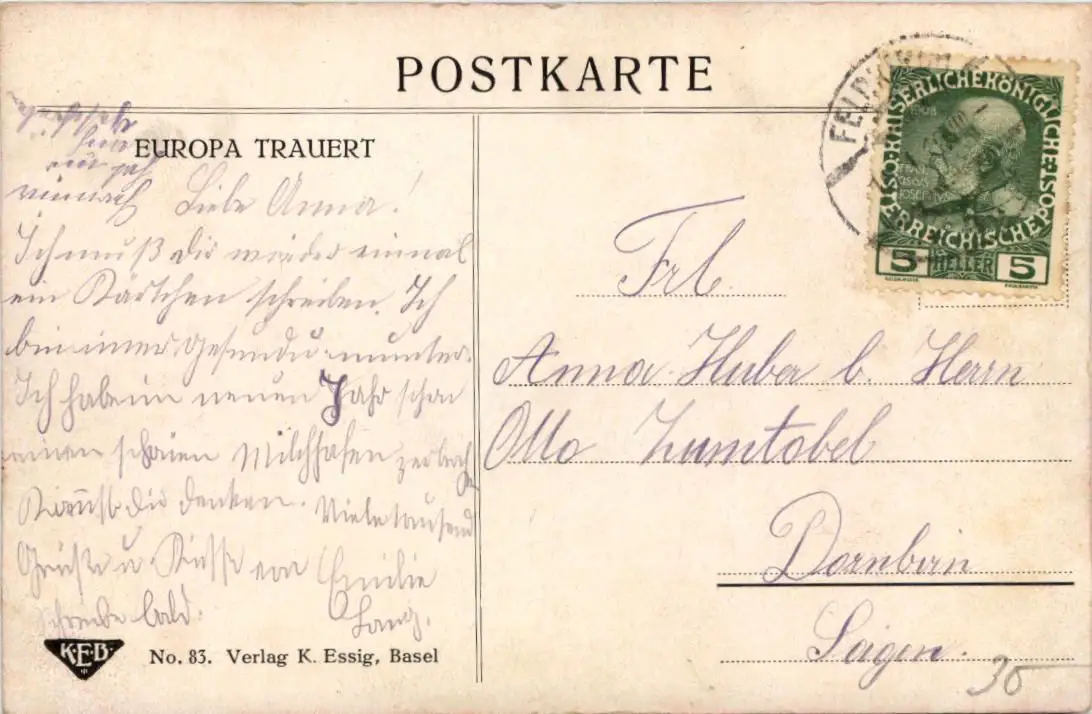 POSTKARTE
EUROPA TRAUERT
Liebe Anna!
Ich muß dir wieder einmal
ein Kärtchen schreiben. Ich
bin immer gesund u. munter.
Ich habe im neuen Jahr schon
einen schönen Milchhafen zerbroch
Kannst dir denken. Viele tausend
Grüße u Küsse von Emilie
Schreibe bald. Lang.
KEB
No. 83. Verlag K. Essig, Basel
FELDKIRCH
KAISERLICHE KÖNIGLICHE
ÖSTERREICHISCHE POST
1908
5 HELLER 5
Frl.
Anna Huber b. Herrn
Otto Zumtobel
Dornbirn
Sägen.
30